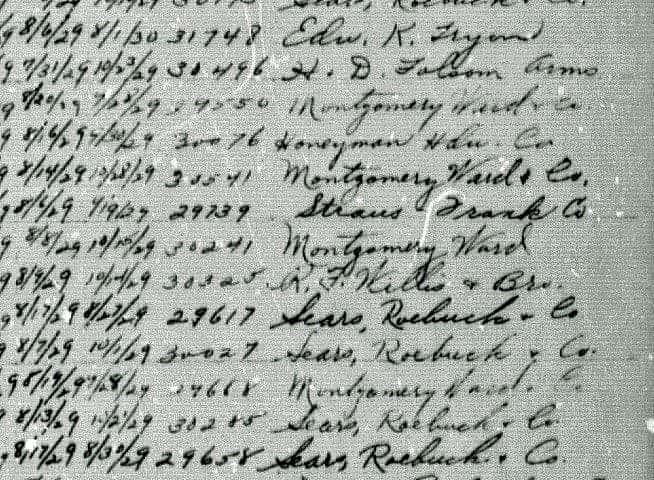 Sears, Roebuck & Co.
9 8/6/29 8/1/30 31748 Edw. K. Tryon
9 7/31/29 10/23/29 30496 H. D. Folsom Arms
9 Montgomery Ward & Co.
9 8/16/29 30076 Honeyman Hdw. Co
9 8/14/29 10/28/29 30541 Montgomery Ward & Co.
9 29739 Straus Frank Co
9 8/8/29 10/10/29 30241 Montgomery Ward
9 8/9/29 10/14/29 30325 & Bro.
9 8/17/29 8/27/29 29617 Sears, Roebuck & Co
9 8/7/29 10/1/29 30027 Sears, Roebuck & Co.
9 Montgomery Ward
9 8/13/29 30285 Sears, Roebuck & Co.
9 8/17/29 8/30/29 29658 Sears, Roebuck & Co.